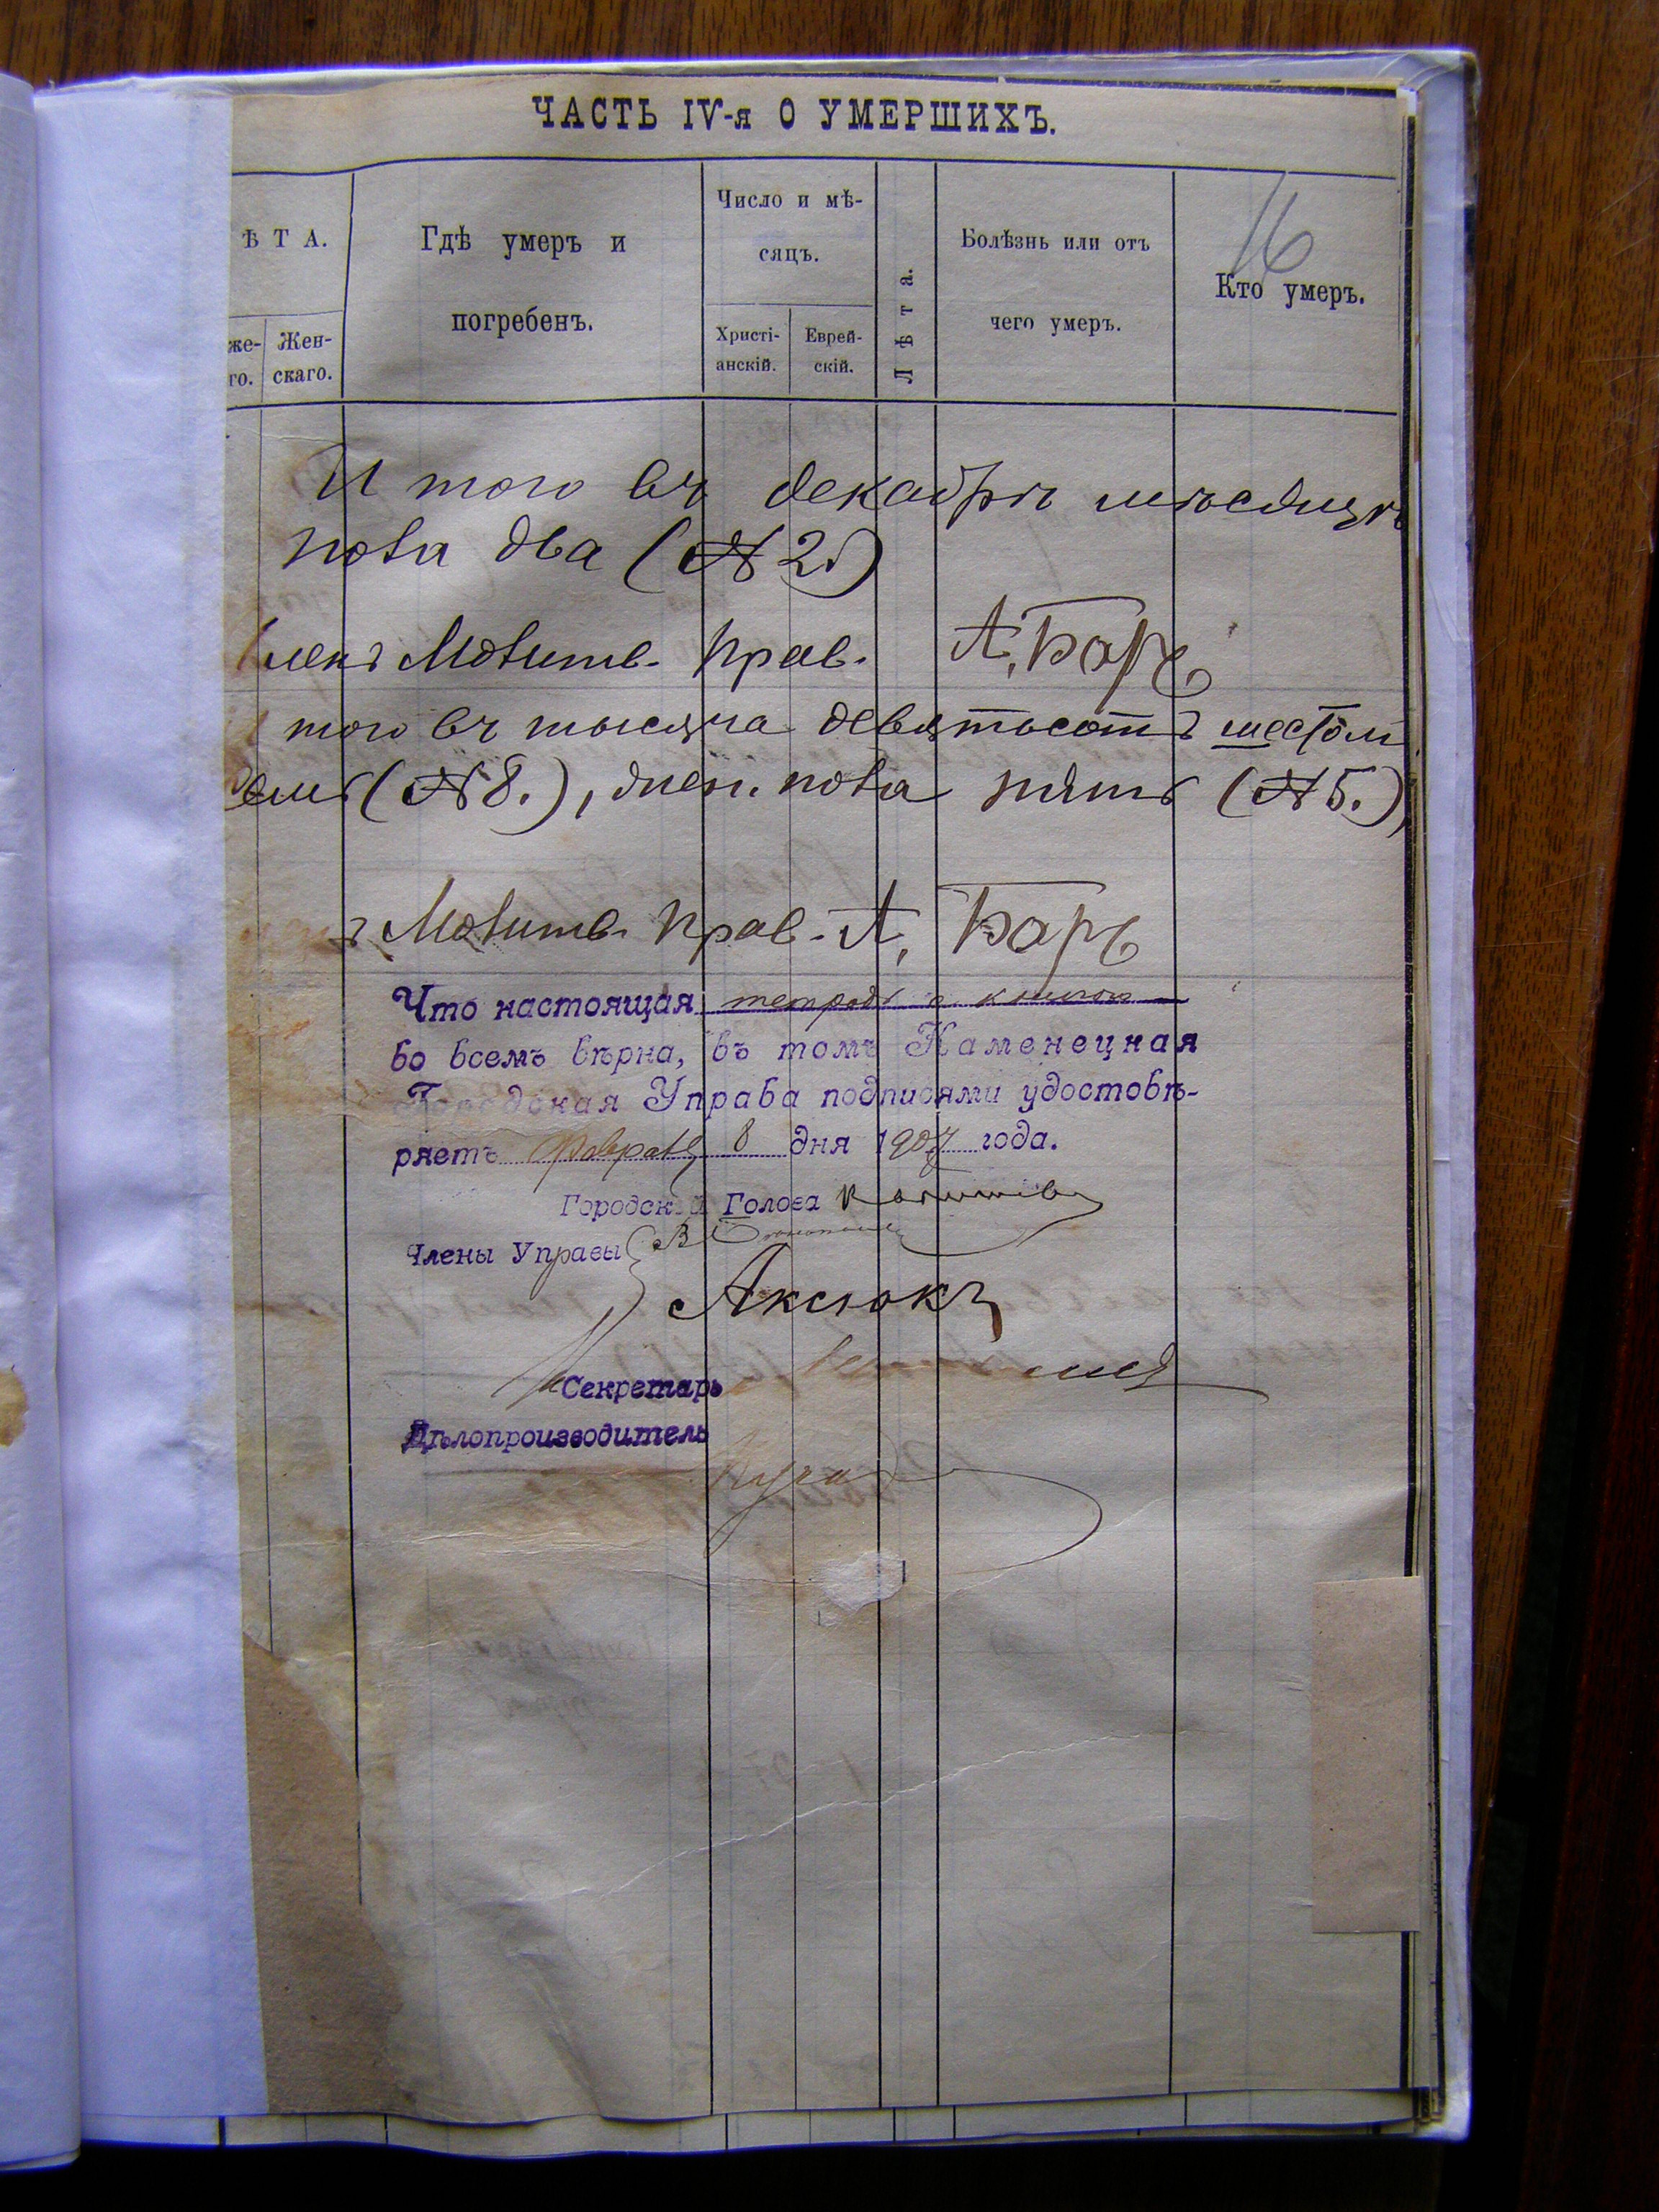 ЧАСТЬ IV-я О УМЕРШИХЪ.
16
ѢТА.
Гдѣ умеръ и
погребенъ.
Число и мѣ-
сяцъ.
Лѣта.
Болѣзнь или отъ
чего умеръ.
Кто умеръ.
же-
го.
Жен-
скаго.
Христі-
анскій.
Еврей-
скій.
И того въ декабрѣ мѣсяцѣ
пола два (№ 2.)
Молитв. Прав. А. Баръ
того въ тысяча девятьсотъ шестом
(№ 8.), пола пять (№ 5.),
Молитв. Прав. А. Баръ
Что настоящая тетрадь съ книгою
во всемъ вѣрна, въ томъ Каменецкая
Городская Управа подписями удостовѣ-
ряетъ февраля 8 дня 1907 года.
Городской Голова
Члены Управы
Аксюкъ
Секретарь
Дѣлопроизводитель